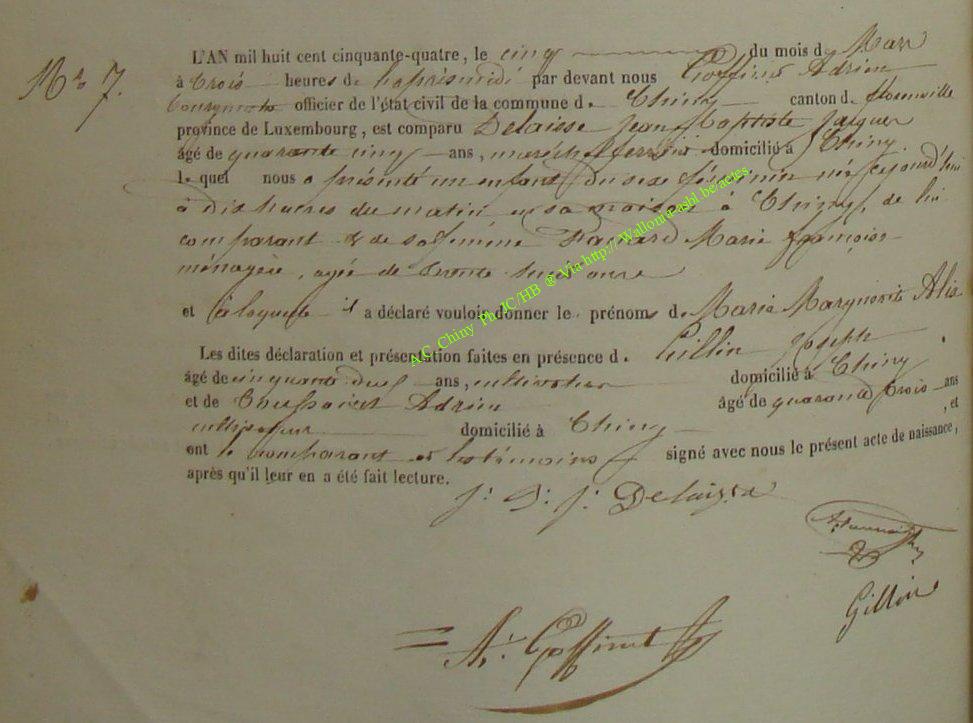 N° 7.
L'AN mil huit cent cinquante-quatre, le cinq du mois d Mars
à trois heures de l'aprésmidi par devant nous Goffinet Adrien
Bourgmestre officier de l'état civil de la commune d. Chiny canton d. florenville
province de Luxembourg, est comparu Delaisse Jean Baptiste Jacques
âgé de quarante cinq ans, maréchal ferrant domicilié à Chiny.
lequel nous a présenté un enfant du sexe féminin né cejourd'hui
à dix heures du matin en sa maison à Chiny, de lui
comparant & de sa femme Marie françoise
ménagère, agée de trente ans
et à laquelle il a déclaré vouloir donner le prénoms de Marie Marguerite
Les dites déclaration et présentation faites en présence d. Gillin Joseph
âgé de cinquante deux ans, cultivateur domicilié à Chiny
et de Toussaint Adrien âgé de quarante trois ans
cultivateur domicilié à Chiny , et
ont le comparant et les témoins signé avec nous le présent acte de naissance,
après qu'il leur en a été fait lecture.
J: B: J: Delaisse
Gillin
A: Goffinet
A.C. Chiny Ph JC/HB @ Via http://Wallonia asbl be/actes